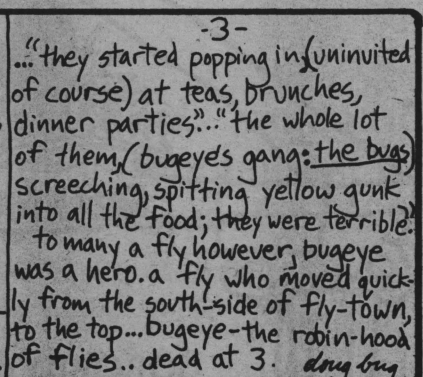 -3-
..."they started popping in, (uninvited
of course) at teas, brunches,
dinner parties"..."the whole lot
of them, (bugeye's gang: the bugs)
screeching, spitting yellow gunk
into all the food; they were terrible."
to many a fly however, bugeye
was a hero. a fly who moved quick-
ly from the south-side of fly-town,
to the top... bugeye-the robin-hood
of flies.. dead at 3. doug bug